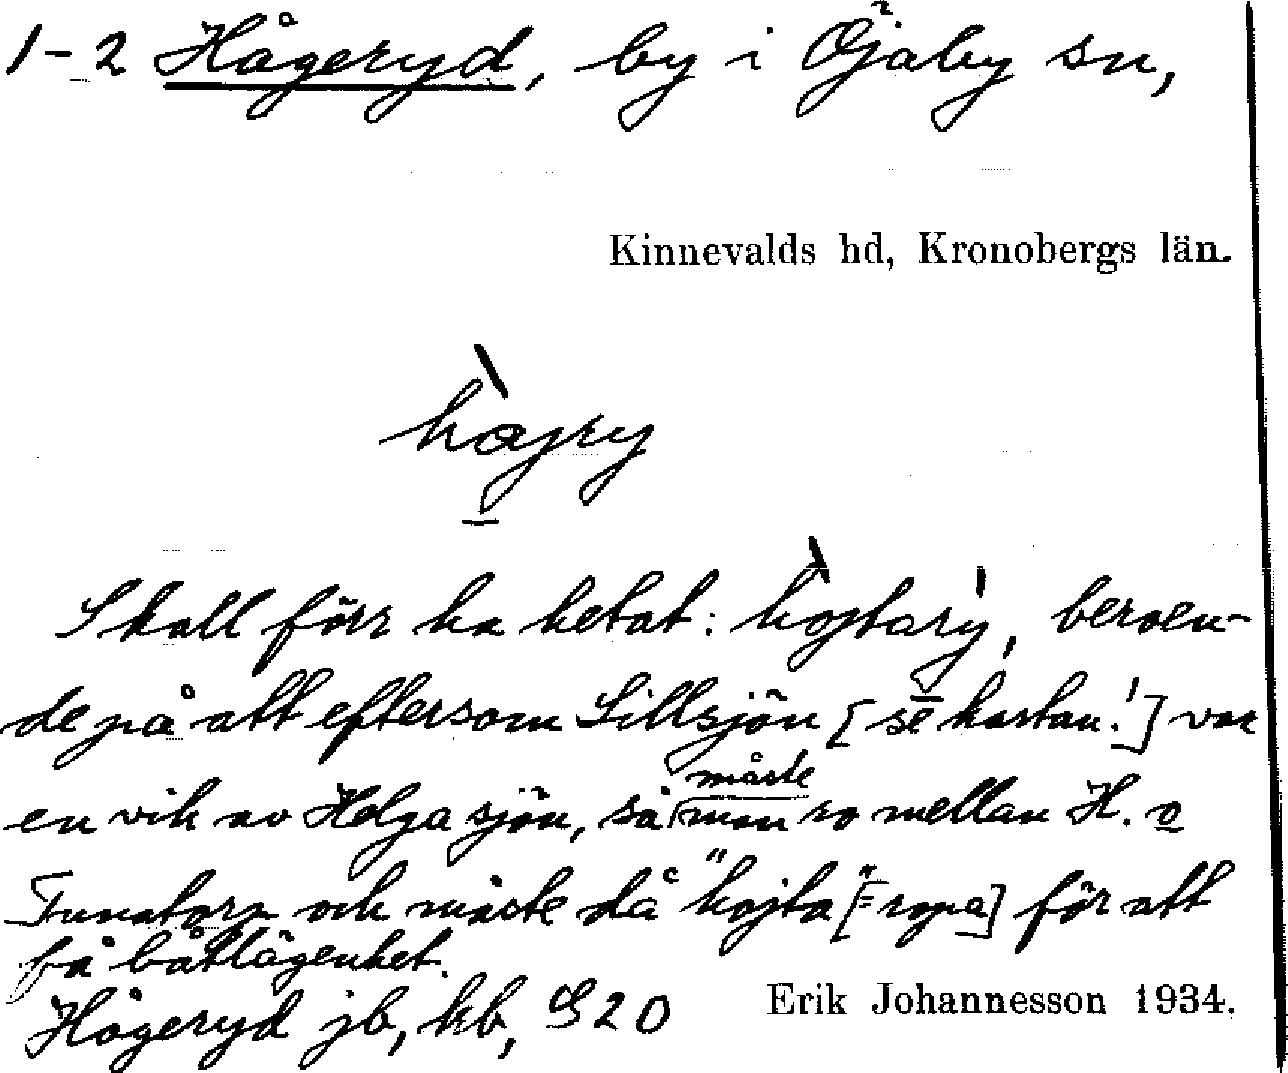 1-2 Hågeryd, by i Öjaby sn,
Kinnevalds hd, Kronobergs län.
hàjry
Skall förr ha hetat: hòjtarý, beroen-
de på att eftersom Sillsjön [se kartan!] var
en vik av Helgasjön, så måste man ro mellan H. o
Tunatorp och måste då "hojta" [= ropa] för att
få båtlägenhet.
Hågeryd jb, kb, S20
Erik Johannesson 1934.